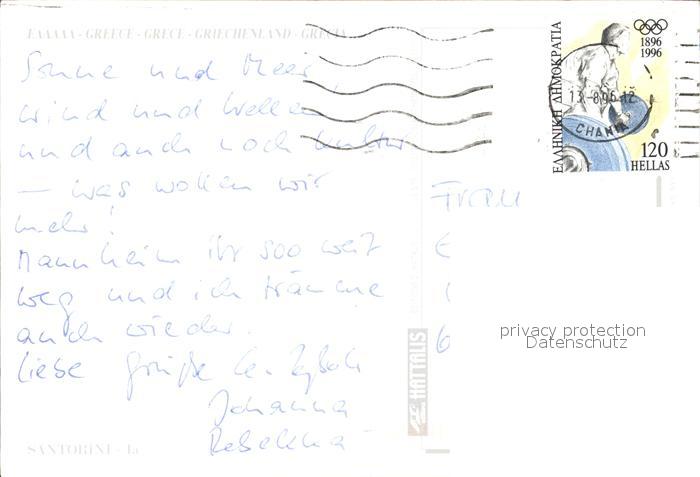 ΕΛΛΑΔΑ - GREECE - GRECE - GRIECHENLAND - GRECIA
Sonne und Meer,
Wind und Wellen
und auch noch Kultur
– was wollen wir
mehr!
Mannheim ist soo weit
weg und ich träume
auch wieder.
Liebe Grüße
Johanna
Rebekka
SANTORINI - Ia
HATTALIS
ΕΛΛΗΝΙΚΗ ΔΗΜΟΚΡΑΤΙΑ
1896
1996
13.-8.96-12
CHANIA
120
HELLAS
Frau
privacy protection
Datenschutz